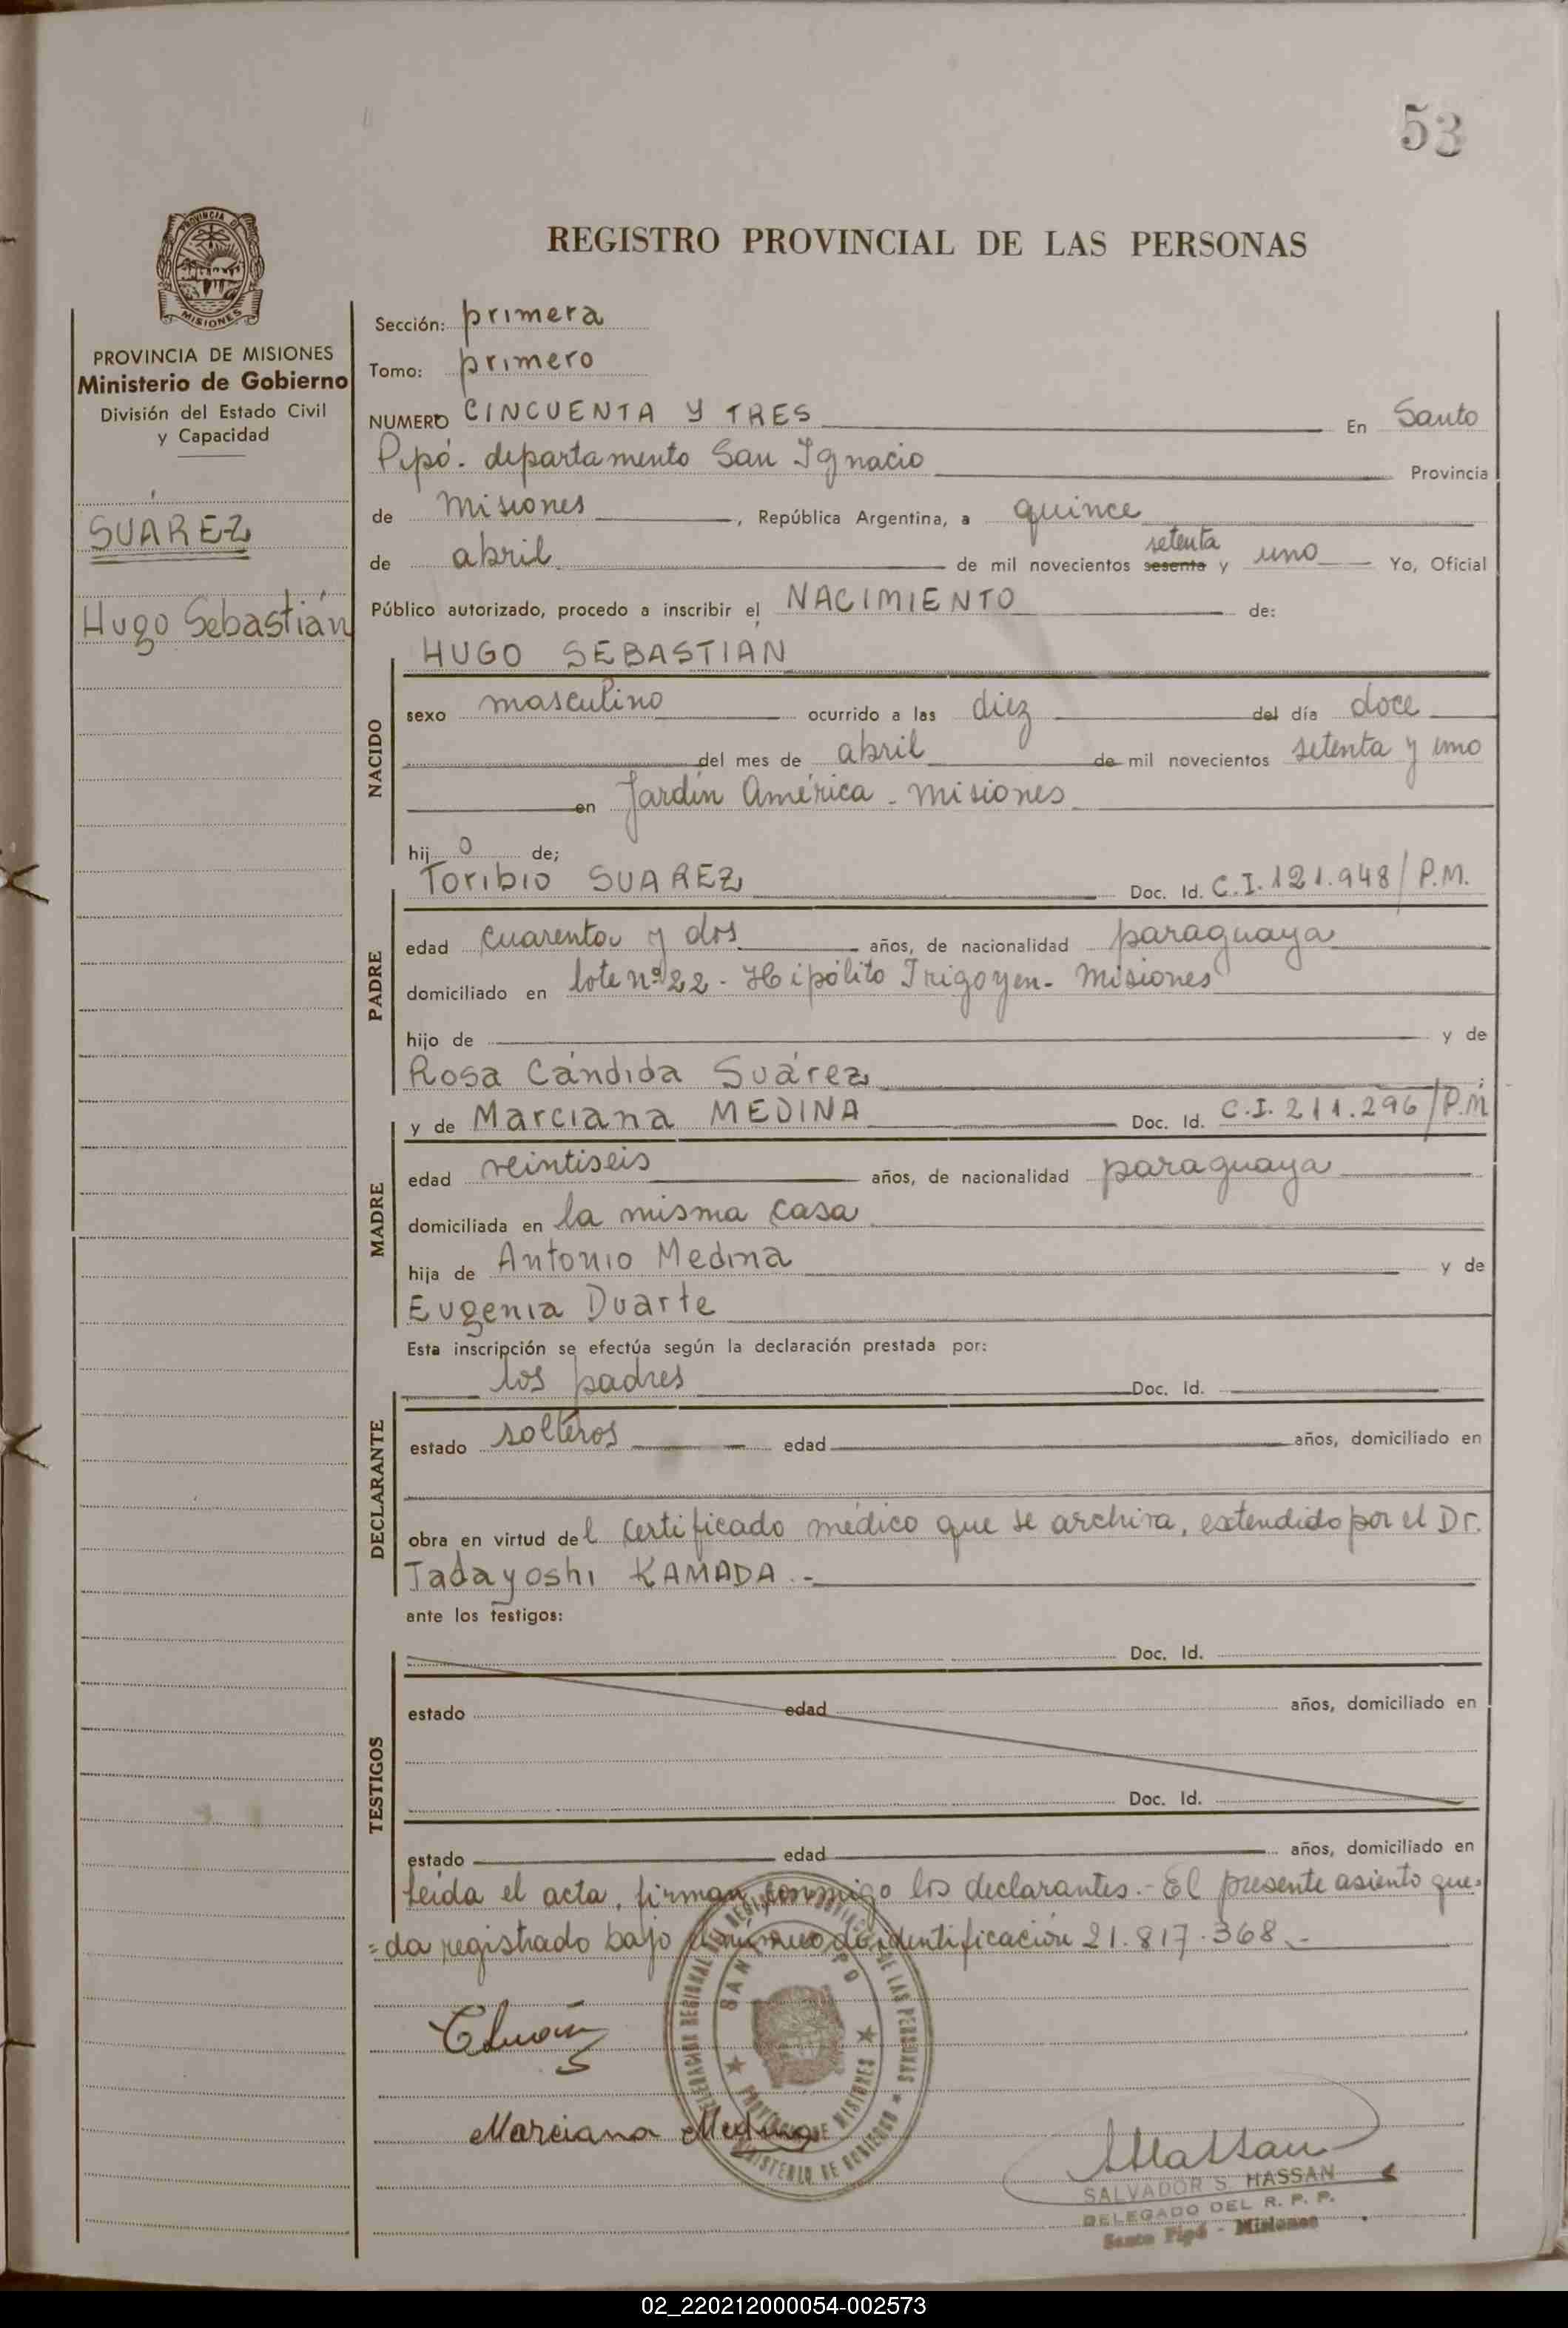 53
PROVINCIA DE
MISIONES
REGISTRO PROVINCIAL DE LAS PERSONAS
PROVINCIA DE MISIONES
Ministerio de Gobierno
División del Estado Civil
y Capacidad
SUAREZ
Hugo Sebastián
Sección: primera
Tomo: primero
NUMERO CINCUENTA Y TRES En Santo
Pipó. departamento San Ignacio Provincia
de Misiones, República Argentina, a quince
setenta
de abril de mil novecientos sesenta y uno Yo, Oficial
Público autorizado, procedo a inscribir el NACIMIENTO de:
HUGO SEBASTIAN
NACIDO
sexo masculino ocurrido a las diez del día doce
del mes de abril de mil novecientos setenta y uno
en Jardín América - Misiones
hij o de;
Toribio SUAREZ Doc. Id. C.I. 121.948/P.M.
PADRE
edad cuarenta y dos años, de nacionalidad paraguaya
domiciliado en lote nº 22 - Hipólito Irigoyen - Misiones
hijo de y de
Rosa Cándida Suárez
y de Marciana MEDINA Doc. Id. C.I. 211.296/P.M
MADRE
edad veintiseis años, de nacionalidad paraguaya
domiciliada en la misma casa
hija de Antonio Medina y de
Eugenia Duarte
Esta inscripción se efectúa según la declaración prestada por:
los padres Doc. Id.
DECLARANTE
estado solteros edad años, domiciliado en
obra en virtud del certificado médico que se archiva, extendido por el Dr.
Tadayoshi KAMADA.-
ante los testigos:
Doc. Id.
TESTIGOS
estado edad años, domiciliado en
Doc. Id.
estado edad años, domiciliado en
Leída el acta, firman conmigo los declarantes.- El presente asiento que=
=da registrado bajo número de identificación 21.817.368.-
Marciana Medina
SALVADOR S. HASSAN
DELEGADO DEL R. P. P.
Santo Pipó - Misiones
02_220212000054-002573